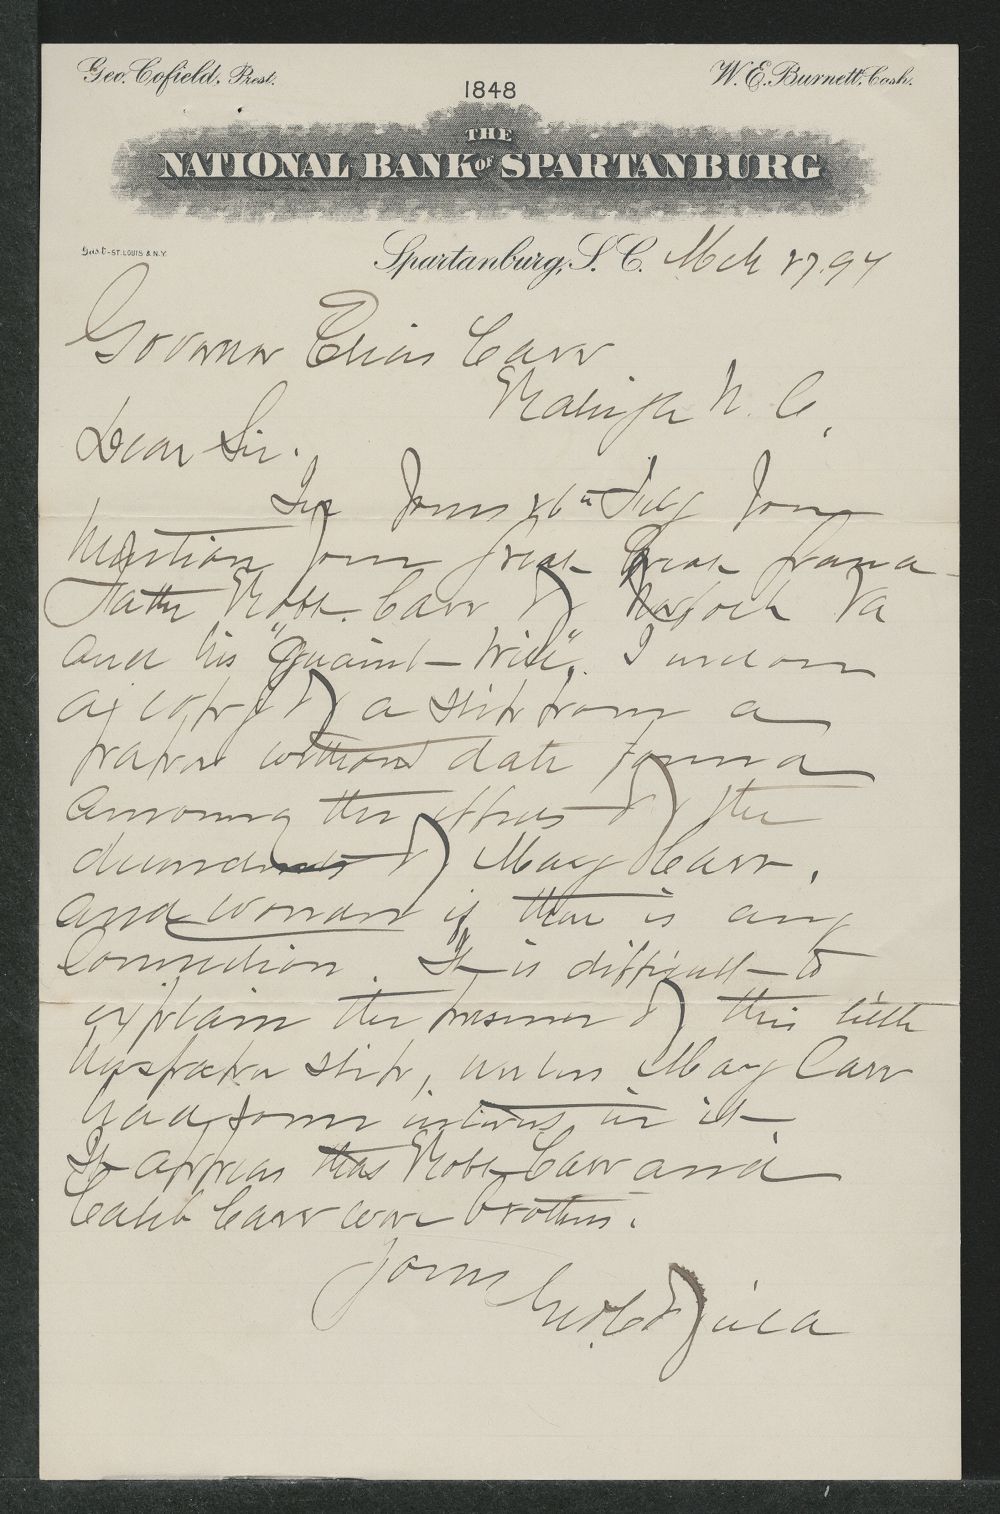 Geo. Cofield, Prest.
W. E. Burnett, Cash.
1848
THE
NATIONAL BANK OF SPARTANBURG
ST. LOUIS & N.Y.
Spartanburg, S. C. Mch 27. 94
Governor Elias Carr
Raleigh N. C.
Dear Sir.
In Yours 26th July You
Mention Your Great Great Grand-
Father Robt. Carr of Va
and his "Quaint Will". I
a copy of a slip from a
paper without date found
among the effects of the
descendants of Mary Carr,
and wonder if there is any
Connection. It is difficult to
explain the presence of this little
Newspaper slip, unless Mary Carr
had some interest in it
It appears that Robt Carr and
Caleb Carr were brothers.
Yours
Geo. Cofield